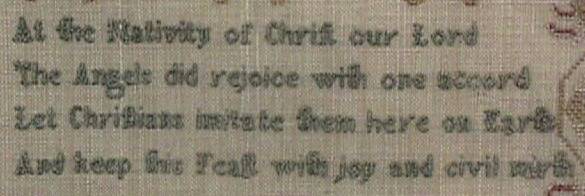 At the Nativity of Christ our Lord
The Angels did rejoice with one accord
Let Christians imitate them here on Earth
And keep this Feast with joy and civil mirth